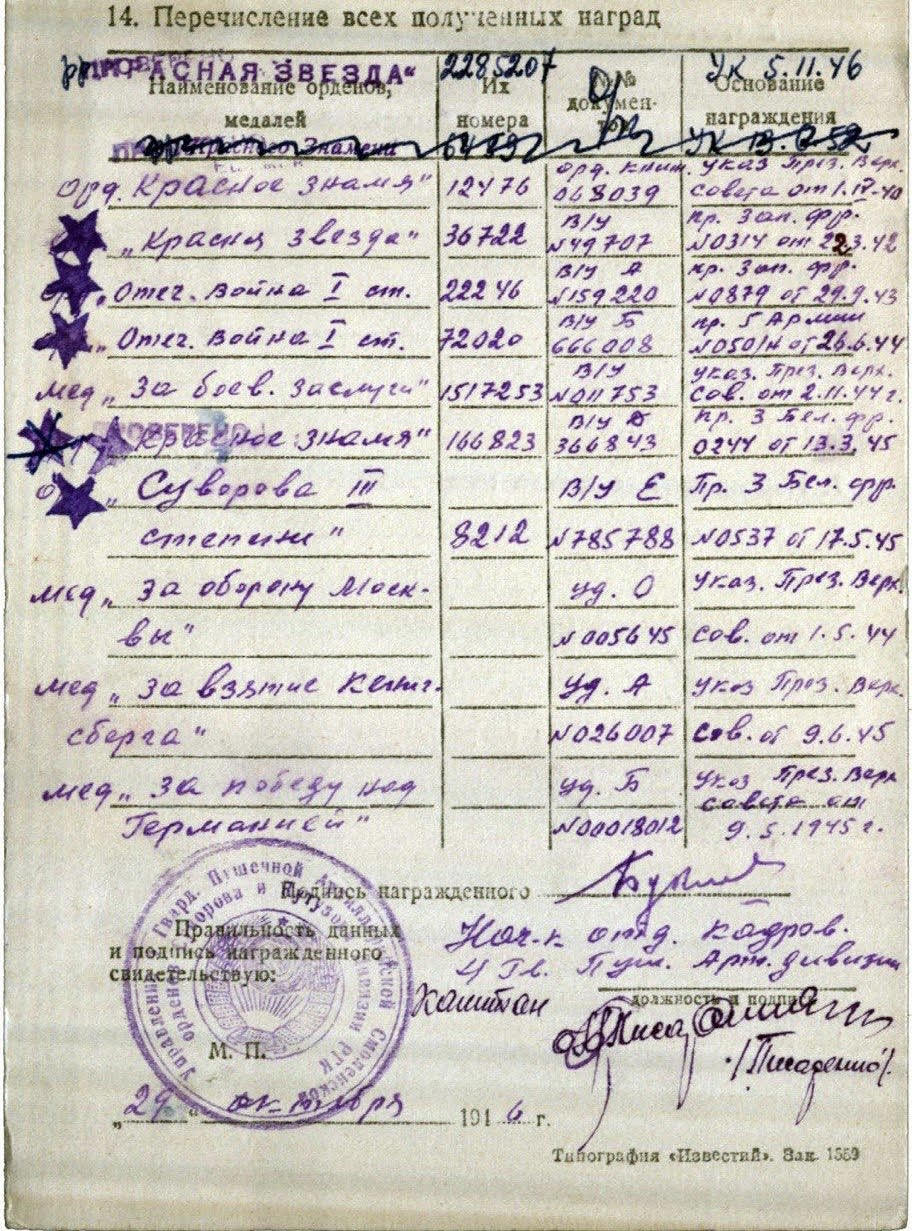 14. Перечисление всех полученных наград
ПРОВЕРЕНО
"КРАСНАЯ ЗВЕЗДА" 2285207 УК 5.11.46
Наименование орденов, медалей Их номера №№ докумен- Основание награждения
Красного Знамени
Орд. "Красное знамя" 12476 орд. книж. 068039 Указ През. Верх. совета от 1.IV-40
"Красная звезда" 36722 В/У №49707 пр. Зап. фр. №0314 от 22.3.42
"Отеч. война I ст. 22246 В/У А №159220 пр. Зап. фр. №0879 от 29.9.43
" Отеч. война I ст. 72020 В/У Б 666008 пр. 5 Армии №0501н от 26.6.44
мед "За боев. заслуги" 1517253 В/У №011753 указ. През. Верх. Сов. от 2.11.44 г.
ПРОВЕРЕНО
"Красное знамя" 166823 В/У 366843 пр. 3 Бел. фр. 0244 от 13.3.45
" Суворова III В/У Е Пр. 3 Бел. фр.
степени" 8212 №785788 №0537 от 17.5.45
мед " За оборону Моск- уд. О Указ. През. Верх.
вы" №005645 Сов. от 1.5.44
мед " За взятие Кениг- Уд. А Указ През. Верх.
сберга" №026007 Сов. от 9.6.45
мед " За победу над Уд. Б Указ През. Верх
Германией" №00018012 совета от 9.5.1945 г.
Подпись награжденного
Правильность данных
и подпись награжденного
свидетельствую:
Нач-к отд. кадров.
4 Гв. Пуш. Арт. дивизии
Капитан
должность и подпись
/Писаренко/
М. П.
"29" октября 1946 г.
Управление Гвард. Пушечной Артиллерийской Смоленской
орденов Суворова и Кутузова дивизии РГК
Типография «Известий». Зак. 1559